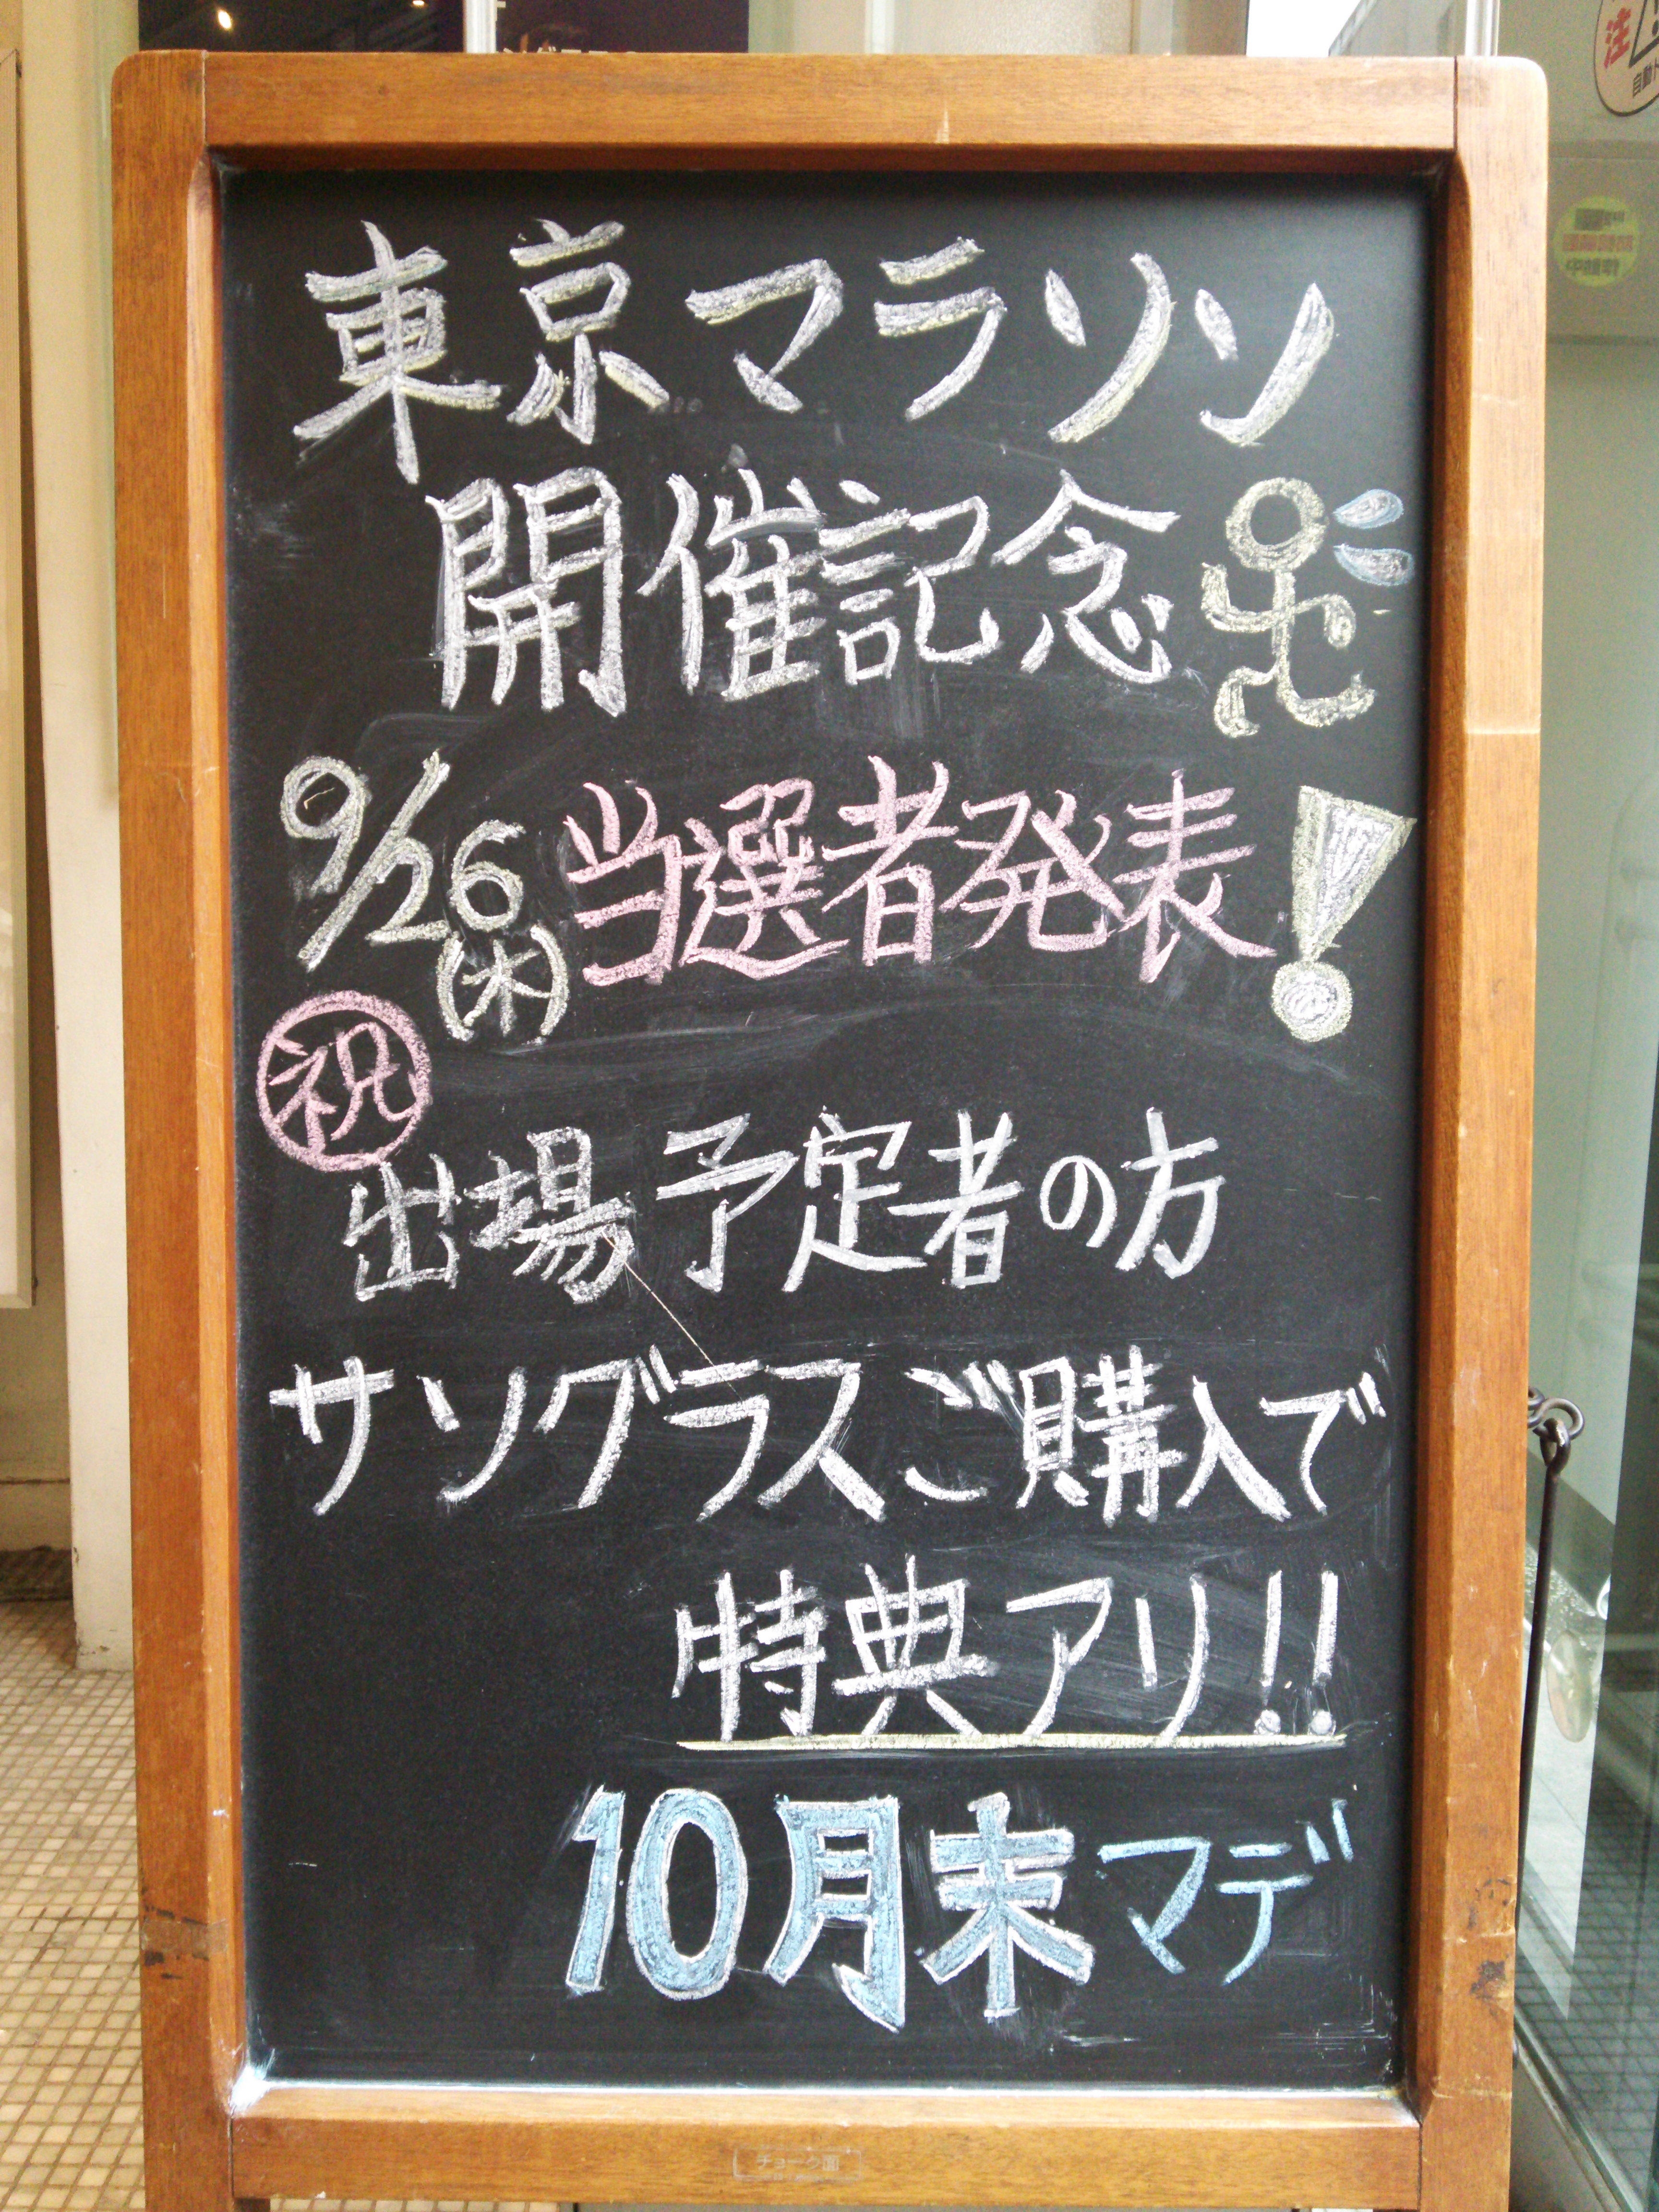 東京マラソン
開催記念
9/26(木)当選者発表!
祝
出場予定者の方
サングラスご購入で
特典アリ!!
10月末マデ
チョーク面
注